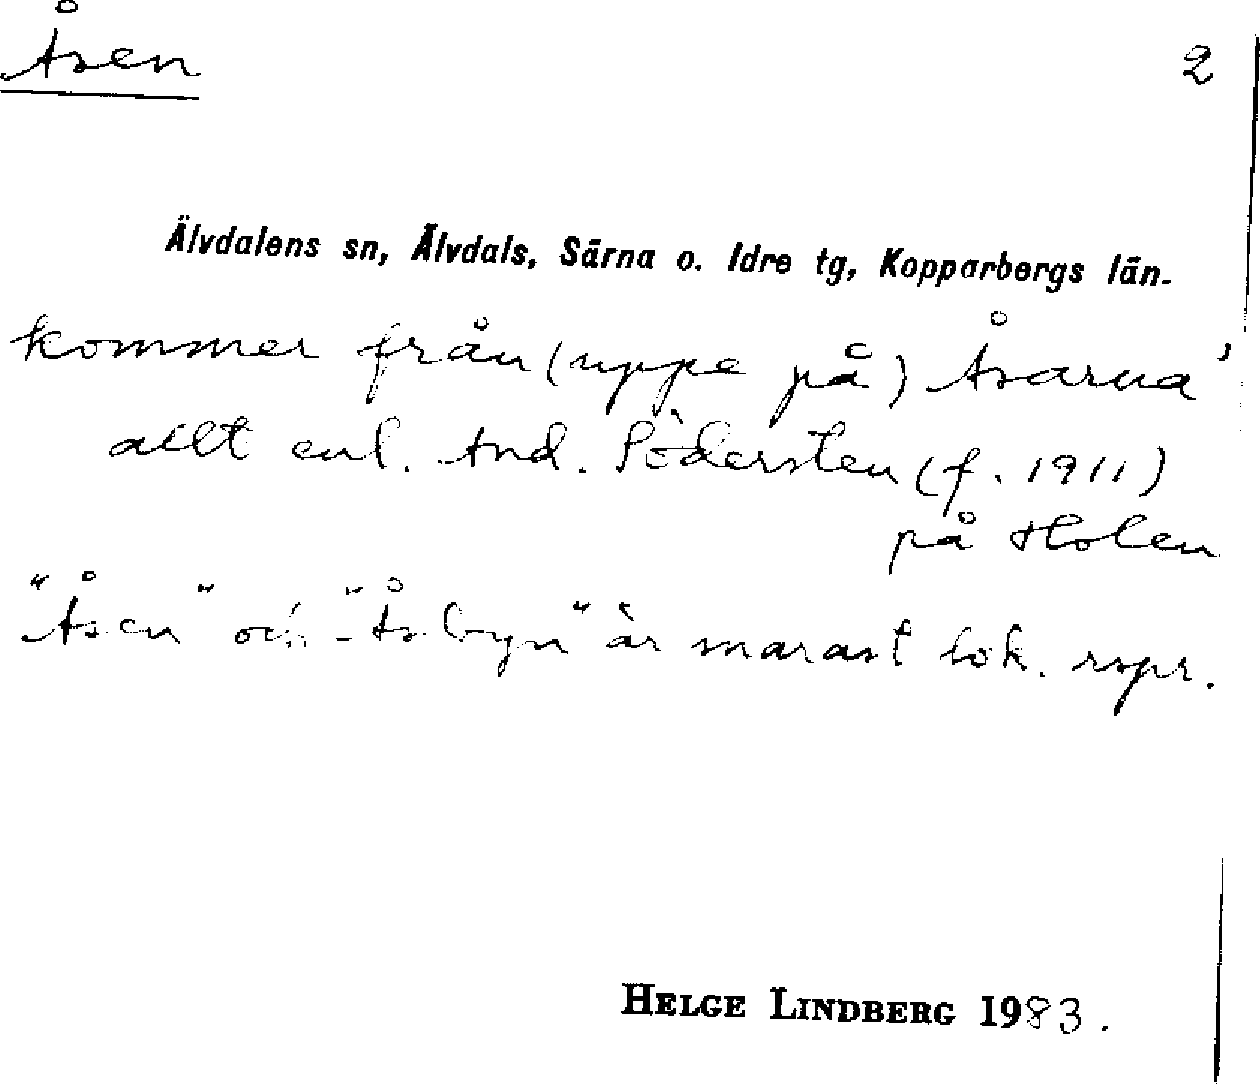 Åsen
2
Älvdalens sn, Älvdals, Särna o. Idre tg, Kopparbergs län.
kommer från (uppe på) Åsarna'
allt enl. And. Södersten (f. 1911)
på Holen
"Åsen" och "Åsbyn" är snarast lok. rspr.
HELGE LINDBERG 1983.